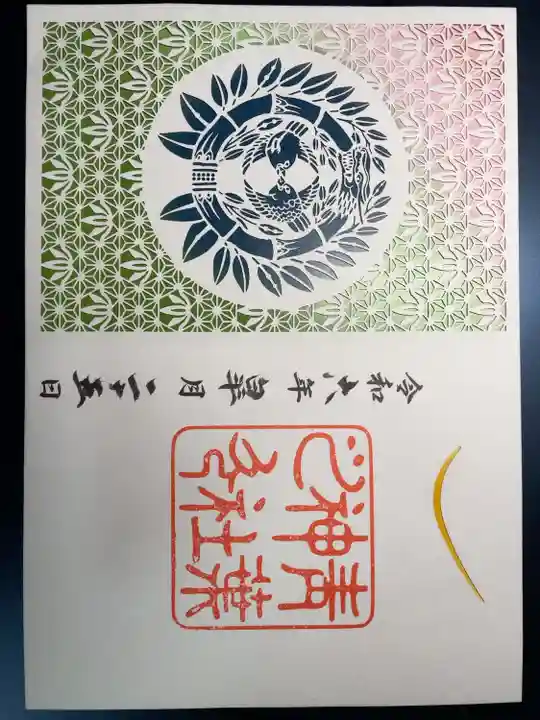 令和六年皐月二十五日
青葉
神社
之印